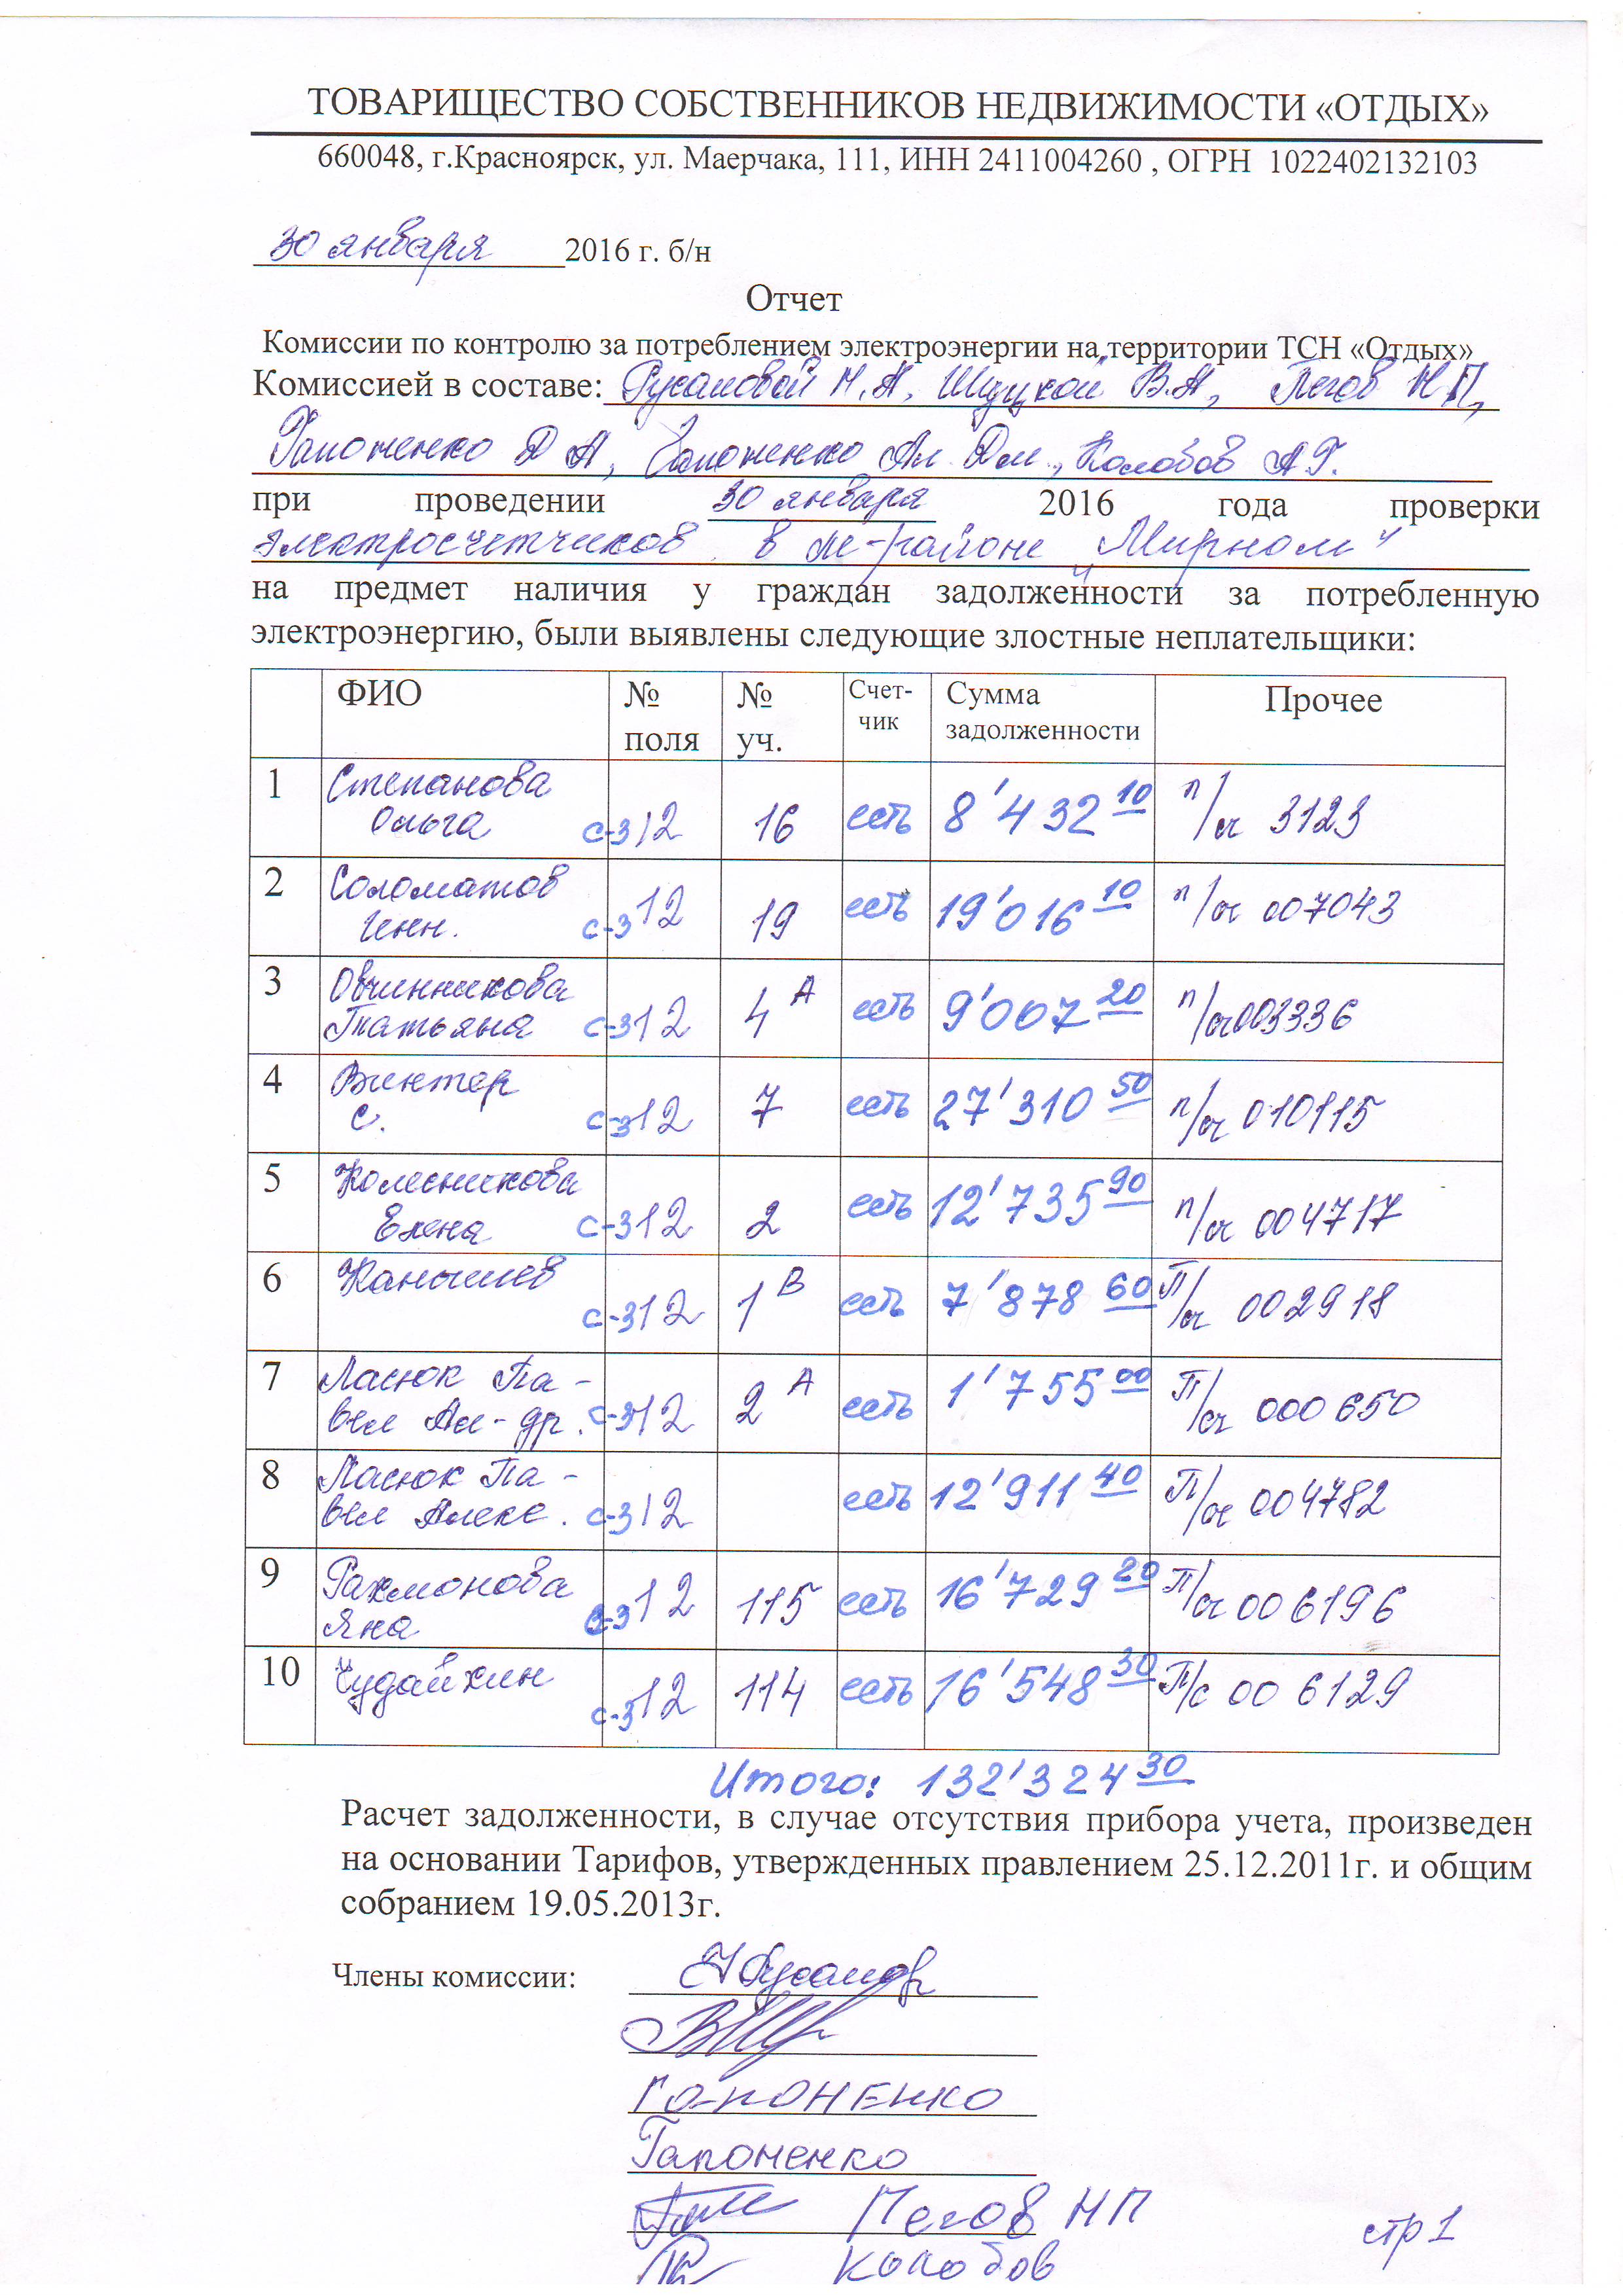 ТОВАРИЩЕСТВО СОБСТВЕННИКОВ НЕДВИЖИМОСТИ «ОТДЫХ»
660048, г.Красноярск, ул. Маерчака, 111, ИНН 2411004260 , ОГРН 1022402132103
30 января 2016 г. б/н
Отчет
Комиссии по контролю за потреблением электроэнергии на территории ТСН «Отдых»
Комиссией в составе: Русановой Н.А, Шуцкой В.А, Пегов Н П,
Гапоненко Д А, Гапоненко Ал. Дм., Колобов А Г.
при проведении 30 января 2016 года проверки
электросчетчиков в м-районе „Мирном"
на предмет наличия у граждан задолженности за потребленную
электроэнергию, были выявлены следующие злостные неплательщики:
ФИО № поля № уч. Счет-чик Сумма задолженности Прочее
1 Степанова Ольга с-3 12 16 есть 8'432 10 п/сч 3123
2 Соломатов Инн. с-3 12 19 есть 19'016 10 п/сч 007043
3 Овчинникова Татьяна с-3 12 4 А есть 9'007 20 п/сч 003336
4 Винтер С. с-3 12 7 есть 27'310 50 п/сч 010115
5 Колесникова Елена с-3 12 2 есть 12'735 90 п/сч 004717
6 Канышев с-3 12 1 В есть 7'878 60 П/сч 002918
7 Ласюк Па-вел Ал-др. с-3 12 2 А есть 1'755 00 П/сч 000650
8 Ласюк Па-вел Алекс. с-3 12 есть 12'911 40 П/сч 004782
9 Рахмонова Яна с-3 12 115 есть 16'729 20 П/сч 006196
10 Чудайкин с-3 12 114 есть 16'548 30 П/с 00 6129
Итого: 132'324 30
Расчет задолженности, в случае отсутствия прибора учета, произведен
на основании Тарифов, утвержденных правлением 25.12.2011г. и общим
собранием 19.05.2013г.
Члены комиссии:
Гапоненко
Гапоненко
Пегов НП
Колобов
стр 1